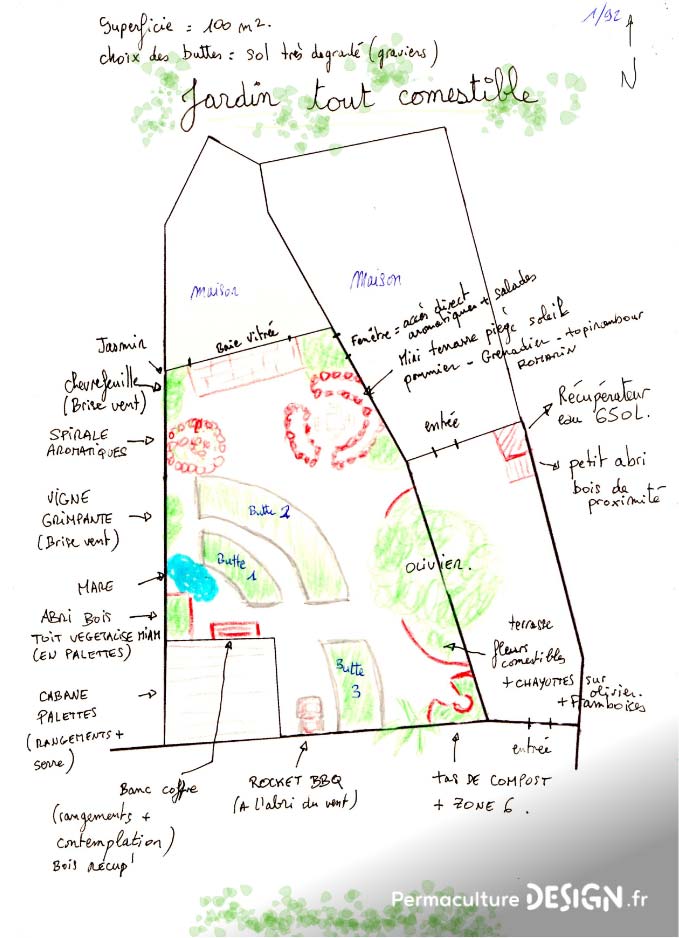 1/92
Superficie = 100 m².
choix des buttes = sol très degradé (graviers)
N
Jardin tout comestible
maison
Maison
Fenêtre = accès direct
aromatiques + salades
Mini terrasse piège soleil
pommier - Grenadier - topinambour
ROMARIN
Jasmin
Baie vitrée
chevrefeuille
(Brise vent)
entrée
Récupérateur
eau 650L.
SPIRALE
AROMATIQUES
petit abri
bois de
proximité
VIGNE
GRIMPANTE
(Brise vent)
Butte 2
Butte
1
OLIVIER.
MARE
ABRI BOIS
TOIT VEGETALISE MIAM
(EN PALETTES)
terrasse
fleurs
comestibles
+ CHAYOTTES sur
olivier
+ framboises
Butte
3
CABANE
PALETTES
(RANGEMENTS +
serre)
entrée
Banc coffre
(rangements +
contemplation)
Bois récup'
ROCKET BBQ
(A l'abri du vent)
tas DE COMPOST
+ ZONE 6.
Permaculture DESIGN.fr